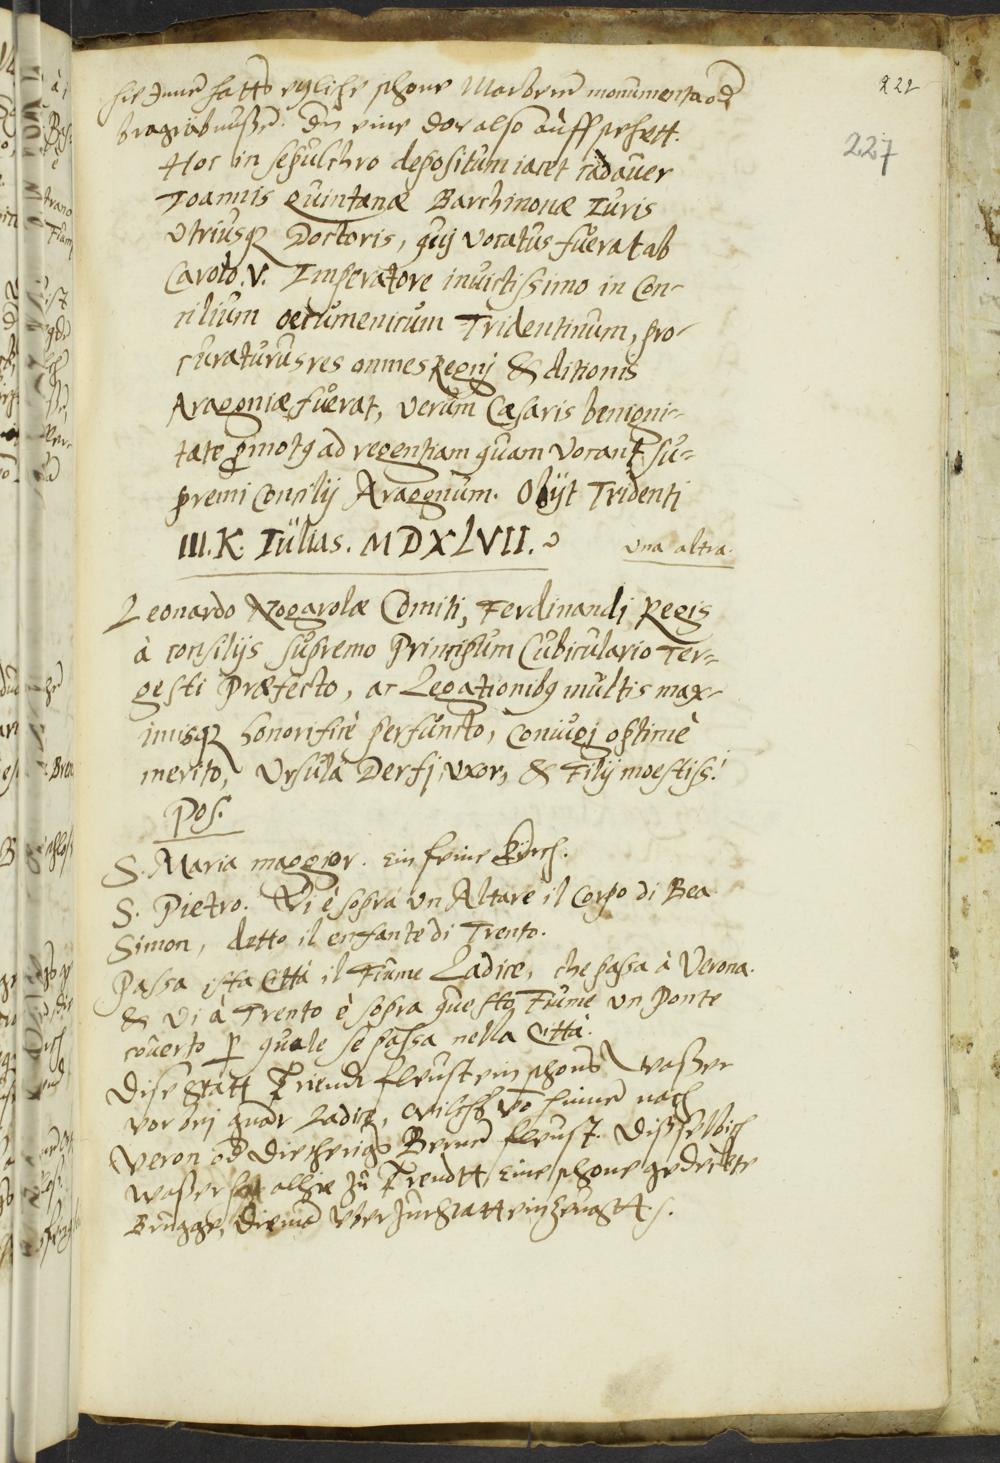 222
227
hie Inne hatt's ezliche schone Marbere monumenta od
begräbnuße. Die eine dar also auff stehett.
Hoc in sepulchro depositum iacet cadauer
Ioannis Quintanæ Barchinonæ Iuris
Vtriusq Doctoris, quj vocatus fuerat ab
Carolo. V. Imperatore inuictissimo in Con-
cilium oecumenicum Tridentinum, pro-
curaturus res omnes Regnj & ditionis
Aragoniæ fuerat, verum Cæsaris benigni-
tate pmotq ad regentiam quam vocant su-
premi Concilij Aragonum. Obijt Tridenti
III. K. Iülias. MDXLVII.
vna altra.
Leonardo Nogarolæ Comiti, Ferdinandj Regis
à consilijs supremo Principum Cubiculario Ter-
gesti Præfecto, ac Legationibq multis max-
imisq honorificè perfuncto, Coniugj optimè
merito, Vrsula Derfj, vxor, & Filij moestiss.
Pos.
S. Maria maggior. Ein feine Kirch.
S. Pietro. Vi è sopra vn Altare il Corpo di Bea
Simon, detto il enfante di Trento.
Passa ista Città il Fiume Ladice, che passa à Verona.
& Vi à Trento è sopra questo Fiume vn Ponte
couerto p quale se passa nella Città.
Dise Statt Triendt fleust ein schons Waßer
vor bej Ladice, wilchs vo hinne nach
Veron od Bernn fleust. Dißselbich
waßer hatt alhie zu Trendtt Eine schone gedeckte
Brugge, vber zur Statt